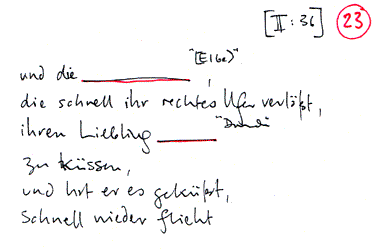 [II: 36] 23
"(Elbe)"
und die ,
die schnell ihr rechtes Ufer verläßt,
ihren Liebling
zu küssen,
und hat er es geküßt,
schnell wieder flieht